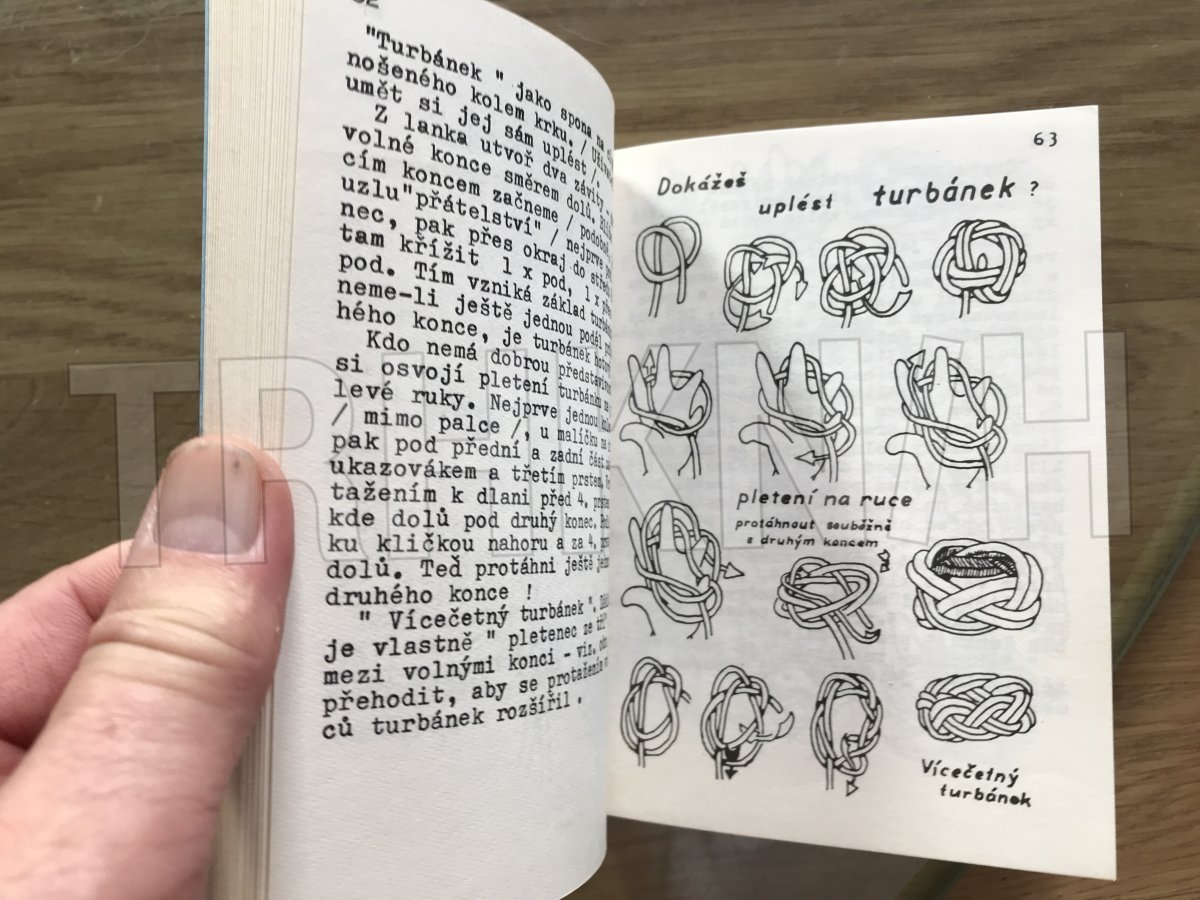 "Turbánek " jako spona na
nošeného kolem krku.
umět si jej sám uplést /.
Z lanka utvoř dva závity.
volné konce směrem dolů.
cím koncem začneme / podobně
uzlu"přátelství" / nejprve
nec, pak přes okraj do
tam křížit 1 x pod, 1 x
pod. Tím vzniká základ
neme-li ještě jednou podél
hého konce, je turbánek
Kdo nemá dobrou
si osvojí pletení turbánku
levé ruky. Nejprve jednou
/ mimo palce /, u malíčku na
pak pod přední a zadní část
ukazovákem a třetím prstem.
tažením k dlani před 4.
kde dolů pod druhý konec.
ku kličkou nahoru a za 4.
dolů. Teď protáhni ještě
druhého konce !
" Vícečetný turbánek".
je vlastně " pletenec ze
mezi volnými konci - viz.
přehodit, aby se protažením
ců turbánek rozšířil.
63
Dokážeš
uplést turbánek ?
pletení na ruce
protáhnout souběžně
s druhým koncem
Vícečetný
turbánek
TRHKNIH